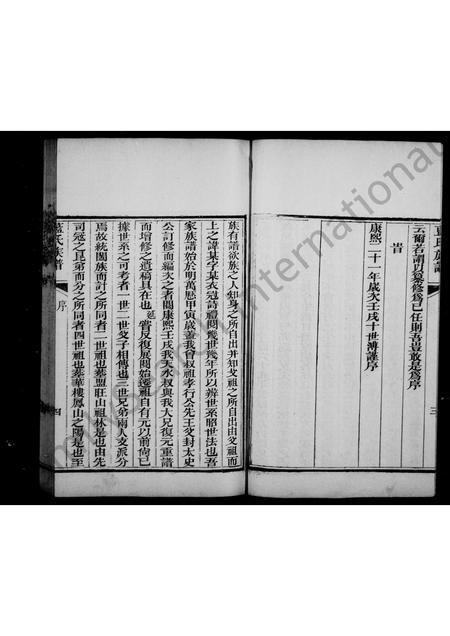 云爾若謂以纂修爲已任則吾豈敢是爲序
旹
康熙二十一年歲次壬戌十世溥謹序
三
族有譜欲族之人知身之所自出并知父祖之所自出由父祖而
上之諱某字某衣冠詩禮閱幾世幾年所以辨世系昭世法也吾
家族譜始於明萬厯甲寅歲蓋我曾叔祖孝行公先王父封太史
公訂修而編次之者閱康熙壬戌我天水叔與我大兄復元重譜
而增修之遺稿具在也延嘗反復展閱始遷祖自有元以前尚已
據世系之可考者一世二世父子相傳也三世兄弟兩人支派分
焉故統闔族而計之所同者二世祖也墓盟旺山祖林是也由先
司冦之昆弟而分之所同者四世祖也墓華樓鳳山之陽是也至
氏族譜
序
四
international